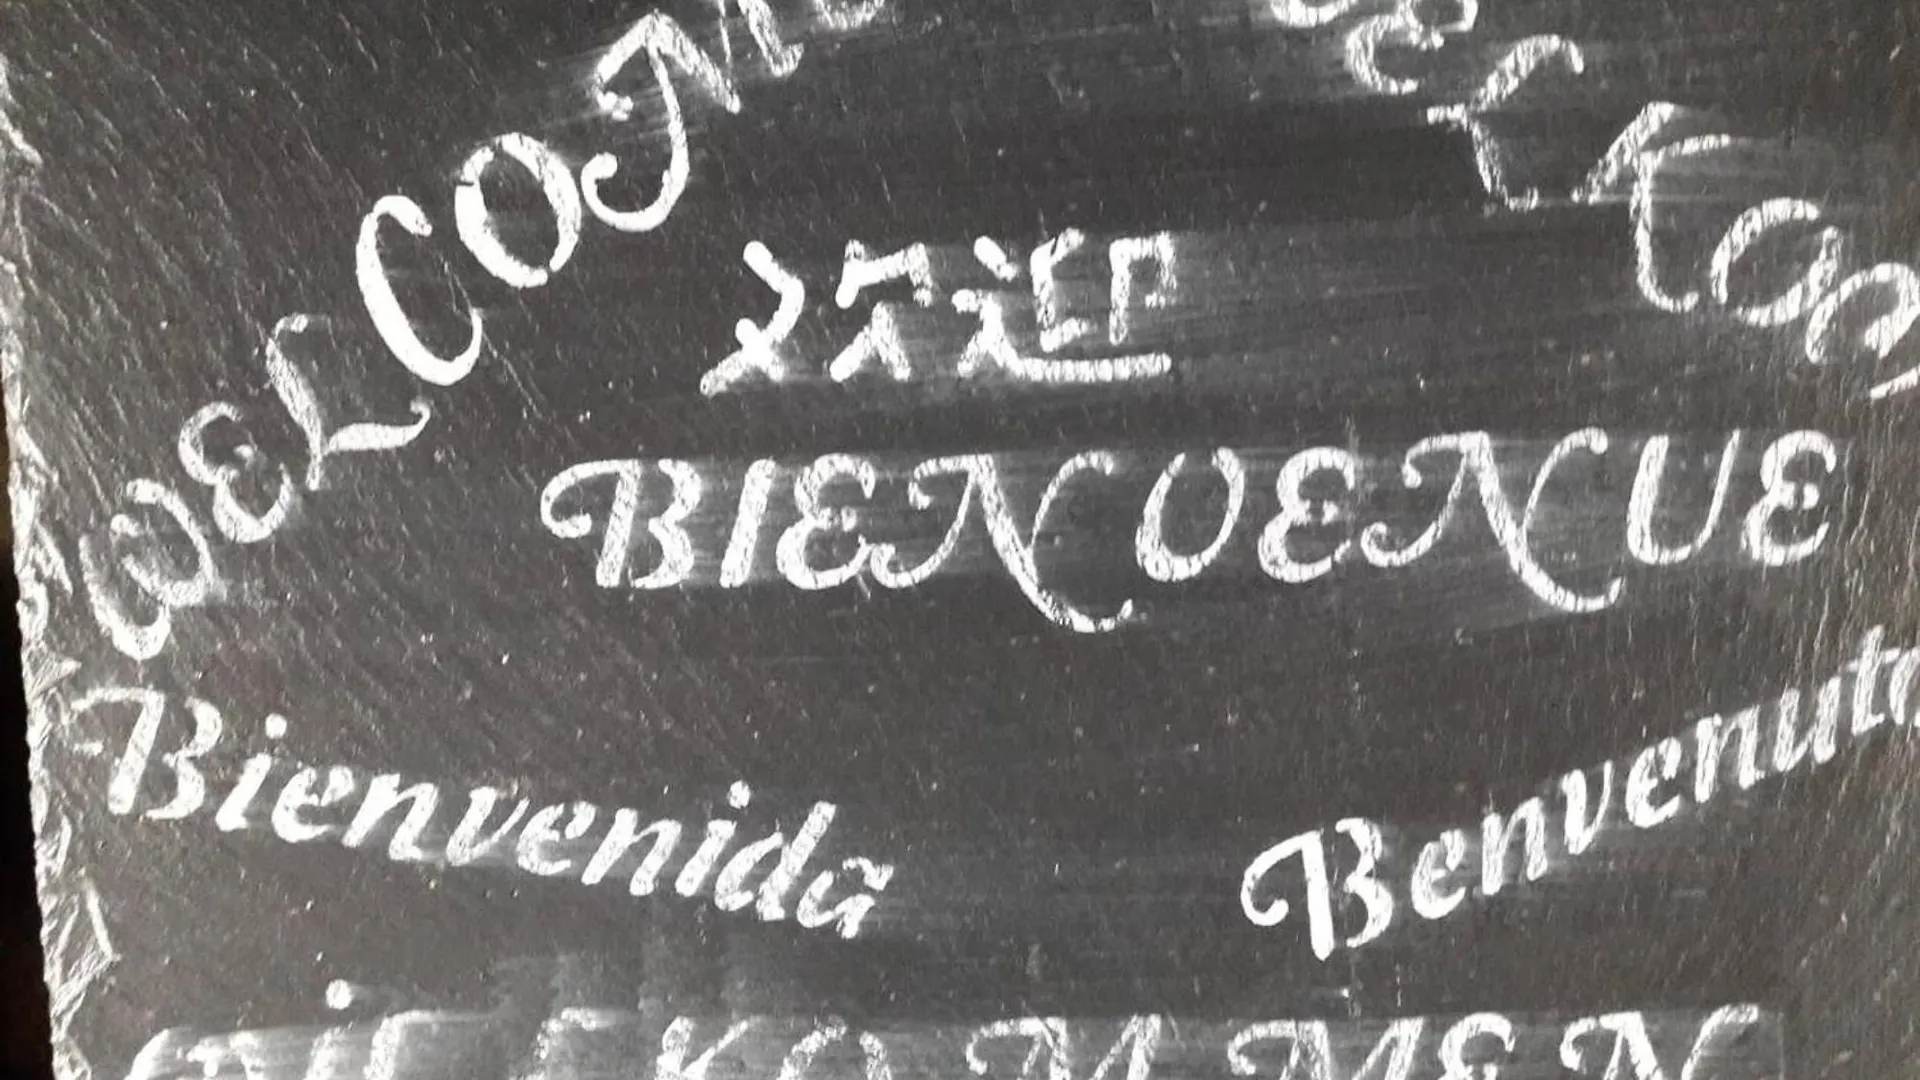 WELCOME
欢迎
BIENVENUE
Bienvenida
Benvenuto
WILLKOMMEN